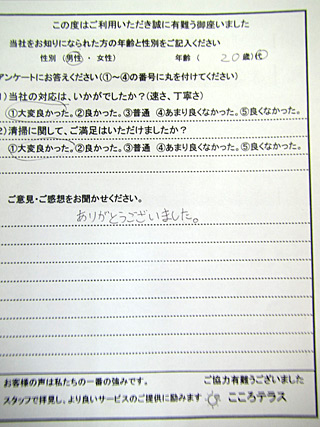 この度はご利用いただき誠に有難う御座いました
当社をお知りになられた方の年齢と性別をご記入ください
性別 (男性・女性) 年齢 ( 20歳)代
アンケートにお答えください(①~④の番号に丸を付けてください)
1)当社の対応は、いかがでしたか?(速さ、丁寧さ)
①大変良かった。②良かった。③普通 ④あまり良くなかった。⑤良くなかった。
2)清掃に関して、ご満足はいただけましたか?
①大変良かった。②良かった。③普通 ④あまり良くなかった。⑤良くなかった。
ご意見・ご感想をお聞かせください。
ありがとうございました。
お客様の声は私たちの一番の強みです。 ご協力有難うございました
スタッフで拝見し、より良いサービスのご提供に励みます こころテラス